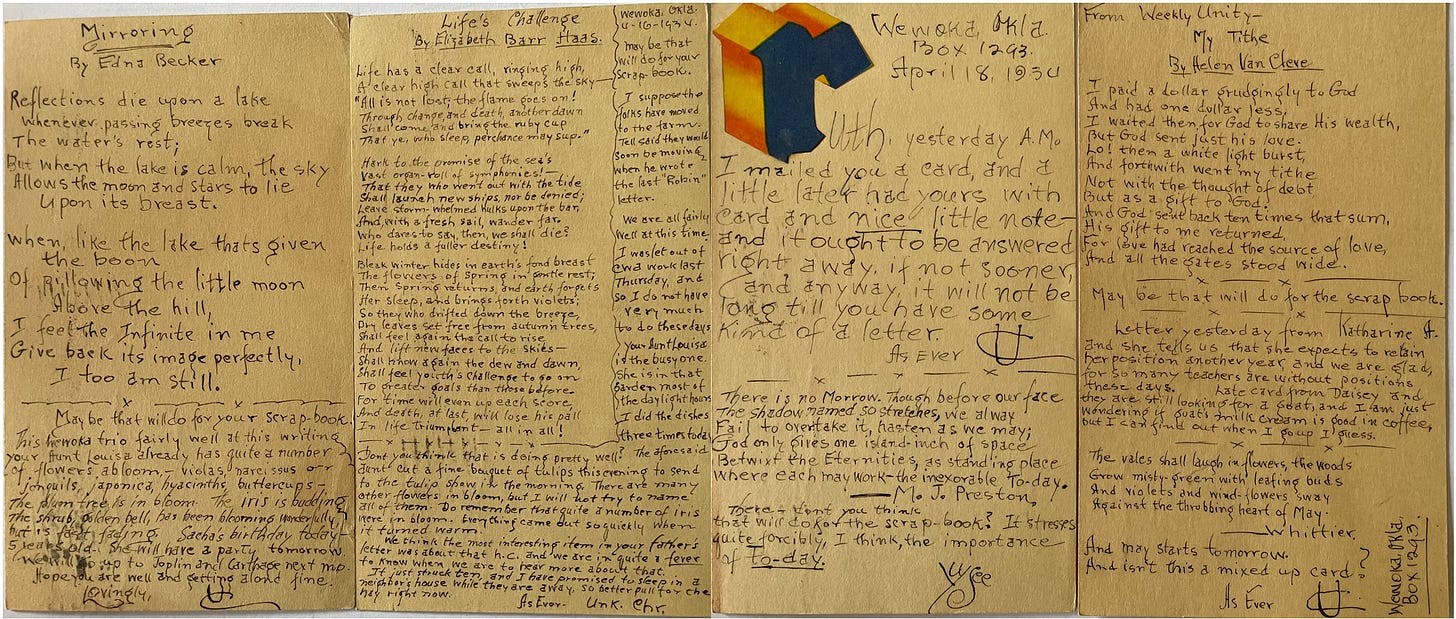 Mirroring
By Edna Becker
Reflections die upon a lake
Whenever passing breezes break
The water's rest;
But when the lake is calm, the sky
Allows the moon and stars to lie
Upon its breast.
When, like the lake thats given
the boon
Of pillowing the little moon
Above the hill,
I feel the Infinite in me
Give back its image perfectly,
I too am still.
Maybe that will do for your scrap-book.
This Wewoka trio fairly well at this writing
your Aunt Louisa already has quite a number
of flowers abloom,- violas, narcissus or
jonquils, japonica, hyacinths, buttercups-
The plum tree is in bloom. The iris is budding
The shrub, golden bell, has been blooming wonderfully,
but is fast fading. Sacha's birthday today-
5 years old. She will have a party tomorrow.
We will go up to Joplin and Carthage next mo.
Hope you are well and getting along fine.
Lovingly,
Life's Challenge
By Elizabeth Barr Haas.
Life has a clear call, ringing high,
A clear high call that sweeps the sky-
"All is not lost; the flame goes on!
Through change and death, another dawn
Shall come and bring the ruby cup
That ye, who sleep, perchance may sup."
Hark to the promise of the sea's
Vast organ-roll of symphonies!-
That they who went out with the tide
Shall launch new ships, nor be denied;
Leave storm-whelmed hulks upon the bar,
And, with a fresh sail, wander far.
Who dares to say, then, we shall die?
Life holds a fuller destiny!
Bleak winter hides in earth's fond breast
The flowers of Spring in gentle rest;
Then Spring returns, and earth forgets
Her sleep, and brings forth violets;
So they who drifted down the breeze,
Dry leaves set free from autumn trees,
Shall feel again the call to rise
And lift new faces to the skies-
Shall know again the dew and dawn,
Shall feel youth's challenge to go on
To greater goals than those before.
For time will even up each score
And death, at last, will lose his pall
In life triumphant- all in all!
Dont you think that is doing pretty well? The aforesaid
aunt cut a fine bouquet of tulips this evening to send
to the tulip show in the morning. There are many
other flowers in bloom, but I will not try to name
all of them. Do remember that quite a number of iris
were in bloom. Everything came out so quickly when
it turned warm.
We think the most interesting item in your father's
letter was about that h.c. and we are in quite a fever
to know when we are to hear more about that.
It just struck ten, and I have promised to sleep in a
neighbor's house while they are away, so better pull for the
hay right now.
As Ever- Unk. Chr.
Wewoka, Okla.
4-16-1934.
may be that
will do for your
scrap-book.
I suppose the
folks have moved
to the farm.
Tell said they would
soon be moving,
when he wrote
the last "Robin"
letter.
We are all fairly
well at this time
I was let out of
cwa work last
Thursday, and
so I do not have
very much
to do these days
your Aunt Louisa
is the busy one.
She is in that
garden most of
the daylight hours
I did the dishes
three times today
Wewoka, Okla.
Box 1293.
April 18, 1934
r
Uth. yesterday A.M.
I mailed you a card, and a
little later had yours with
card and nice little note-
and it ought to be answered
right away, if not sooner,
and anyway, it will not be
long till you have some
kind of a letter.
As Ever
There is no Morrow. Though before our face
The shadow named so stretches, we alway
Fail to overtake it, hasten as we may;
God only gives one island-inch of space
Betwixt the Eternities, as standing place
where each may work- the inexorable To-day.
M. J. Preston
There- dont you think
that will do for the scrap-book? It stresses
quite forcibly, I think, the importance
of To-day.
From Weekly Unity-
My Tithe
By Helen Van Cleve
I paid a dollar grudgingly to God
And had one dollar less,
I waited then for God to share His wealth,
But God sent just his love.
Lo! then a white light burst,
And forthwith went my tithe
Not with the thought of debt
But as a gift to God!
And God sent back ten times that sum,
His gift to me returned,
For love had reached the source of love,
And all the gates stood wide.
May be that will do for the scrap book.
Letter yesterday from Katharine A.
and she tells us that she expects to retain
her position another year, and we are glad,
for so many teachers are without positions
these days. Late card from Daisey and
they are still looking for a goat, and I am just
wondering if goat's milk cream is good in coffee,
but I can find out when I go up I guess.
The vales shall laugh in flowers, the woods
Grow misty-green with leafing buds
And violets and wind-flowers sway
Against the throbbing heart of May.
Whittier.
And may starts tomorrow.
And isn't this a mixed up card?
As Ever
Wewoka, Okla.
Box 1293.